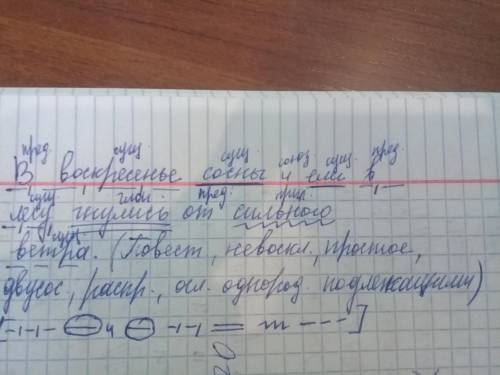 пред. сущ. сущ. союз сущ. пред.
В воскресенье сосны и ели в
сущ. глагол пред. прил.
лесу гнулись от сильного
сущ.
ветра. (Повест., невоскл., простое,
двусос., распр., осл. однород. подлежащими)
и
20